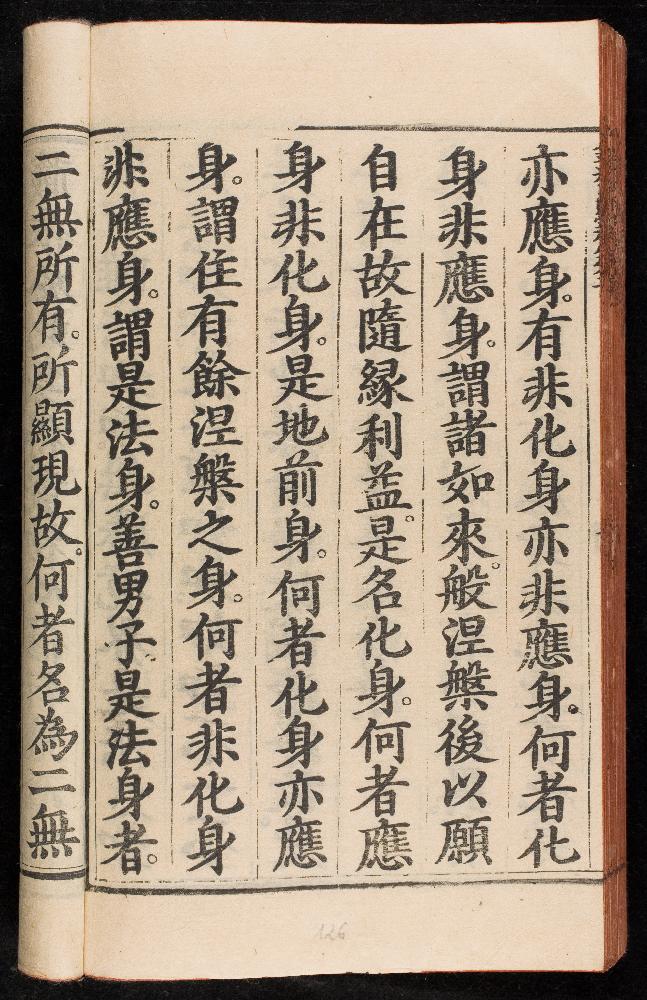 亦應身。有非化身亦非應身。何者化
身非應身。謂諸如來。般涅槃後以願
自在故隨緣利益。是名化身。何者應
身非化身。是地前身。何者化身亦應
身。謂住有餘涅槃之身。何者非化身
非應身。謂是法身。善男子。是法身者。
二無所有。所顯現故。何者名為二無
126